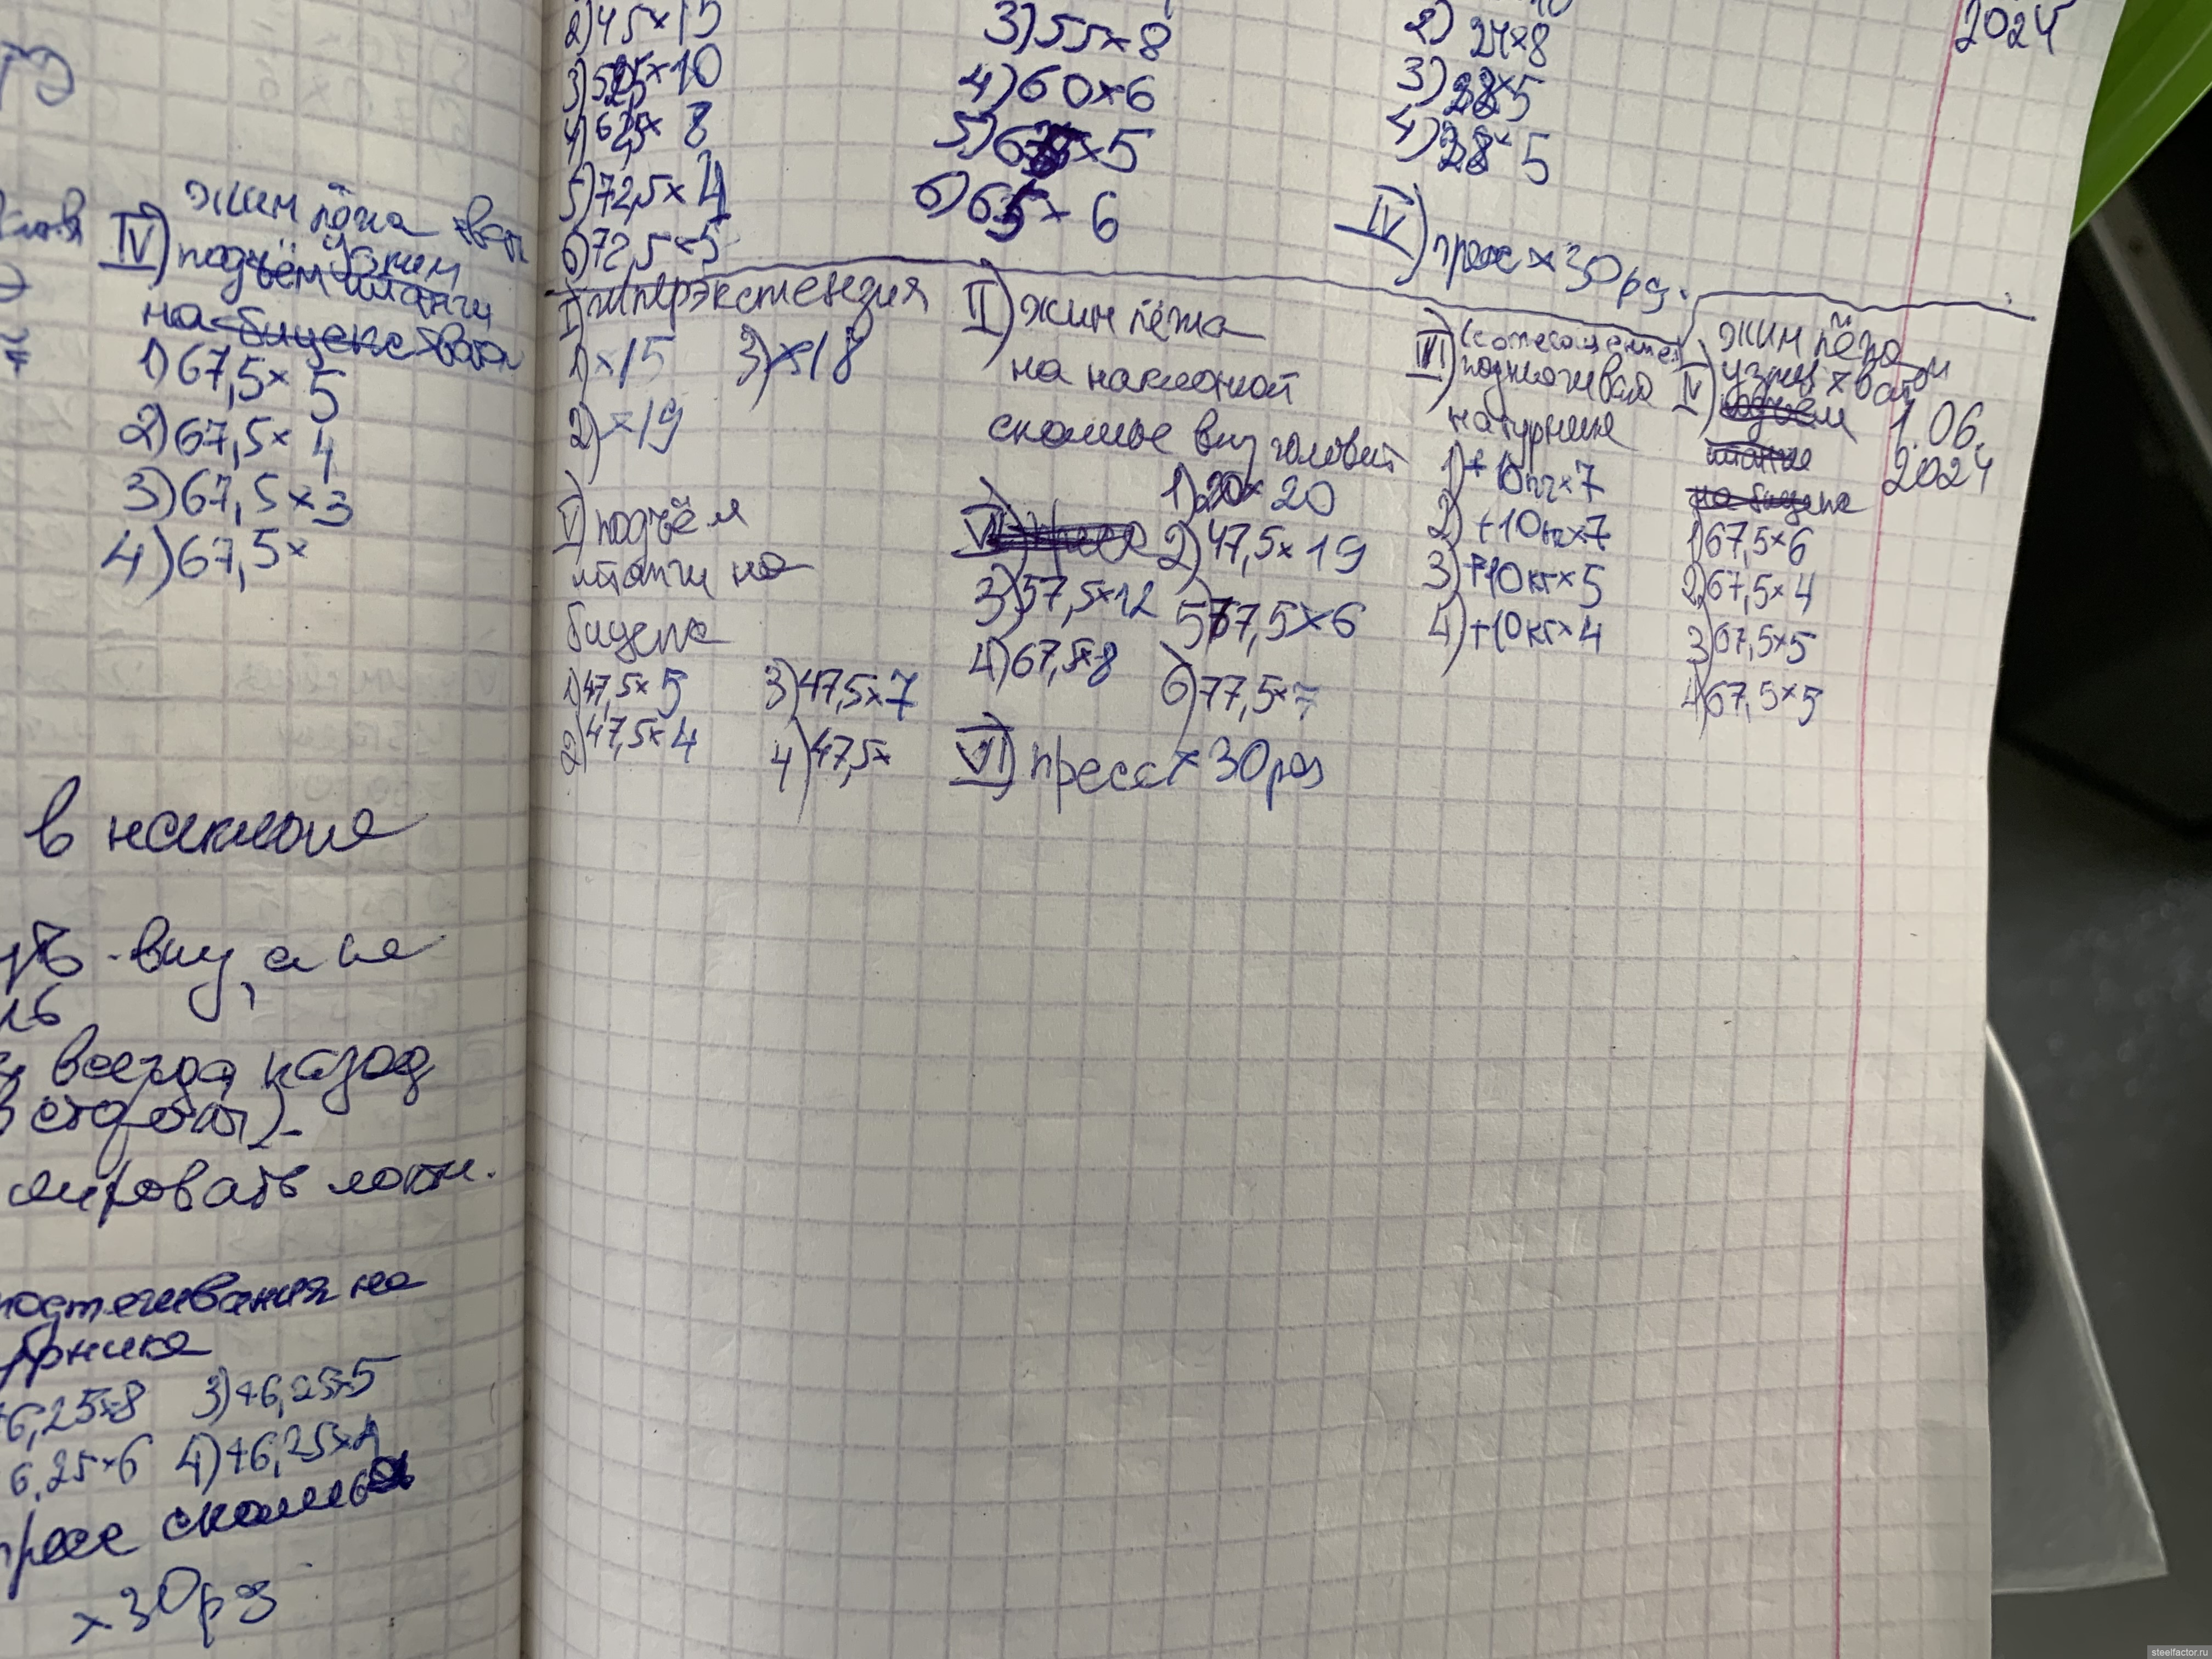 IV) жим лёжа
узким
1) 67,5×5
2) 67,5×4
3) 67,5×3
4) 67,5×
в наклоне
вниз, а не
всегда назад
в стороны).
локти.
подтягивания на
6,25×8 3) +6,25×5
6,25×6 4) +6,25×4
пресс скамья
×30 раз
2) 45×15
3) 52,5×10
4) 62,5×8
5) 72,5×4
6) 72,5×5
3) 55×8
4) 60×6
5) ×5
6) 65×6
2) 24×8
3) 28×5
4) 28×5
IV) пресс ×30 раз.
2024
I) гиперэкстензия
1) ×15 3) ×18
2) ×19
II) жим лёжа
на наклонной
скамье вниз головой
1) 20×20
2) 47,5×19
3) 57,5×12 5) 77,5×6
4) 67,5×8
6) 77,5×7
III) (с отягощением)
подтягивания
на турнике
1) +10кг×7
2) +10кг×7
3) +10кг×5
4) +10кг×4
жим лёжа
IV) узким хватом
подъём
штанги
на бицепс
1) 67,5×6
2) 67,5×4
3) 67,5×5
4) 67,5×5
1.06.
2024
V) подъём
штанги на
бицепс
1) 47,5×5 3) 47,5×7
2) 47,5×4 4) 47,5×
VI) пресс × 30 раз
steelfactor.ru